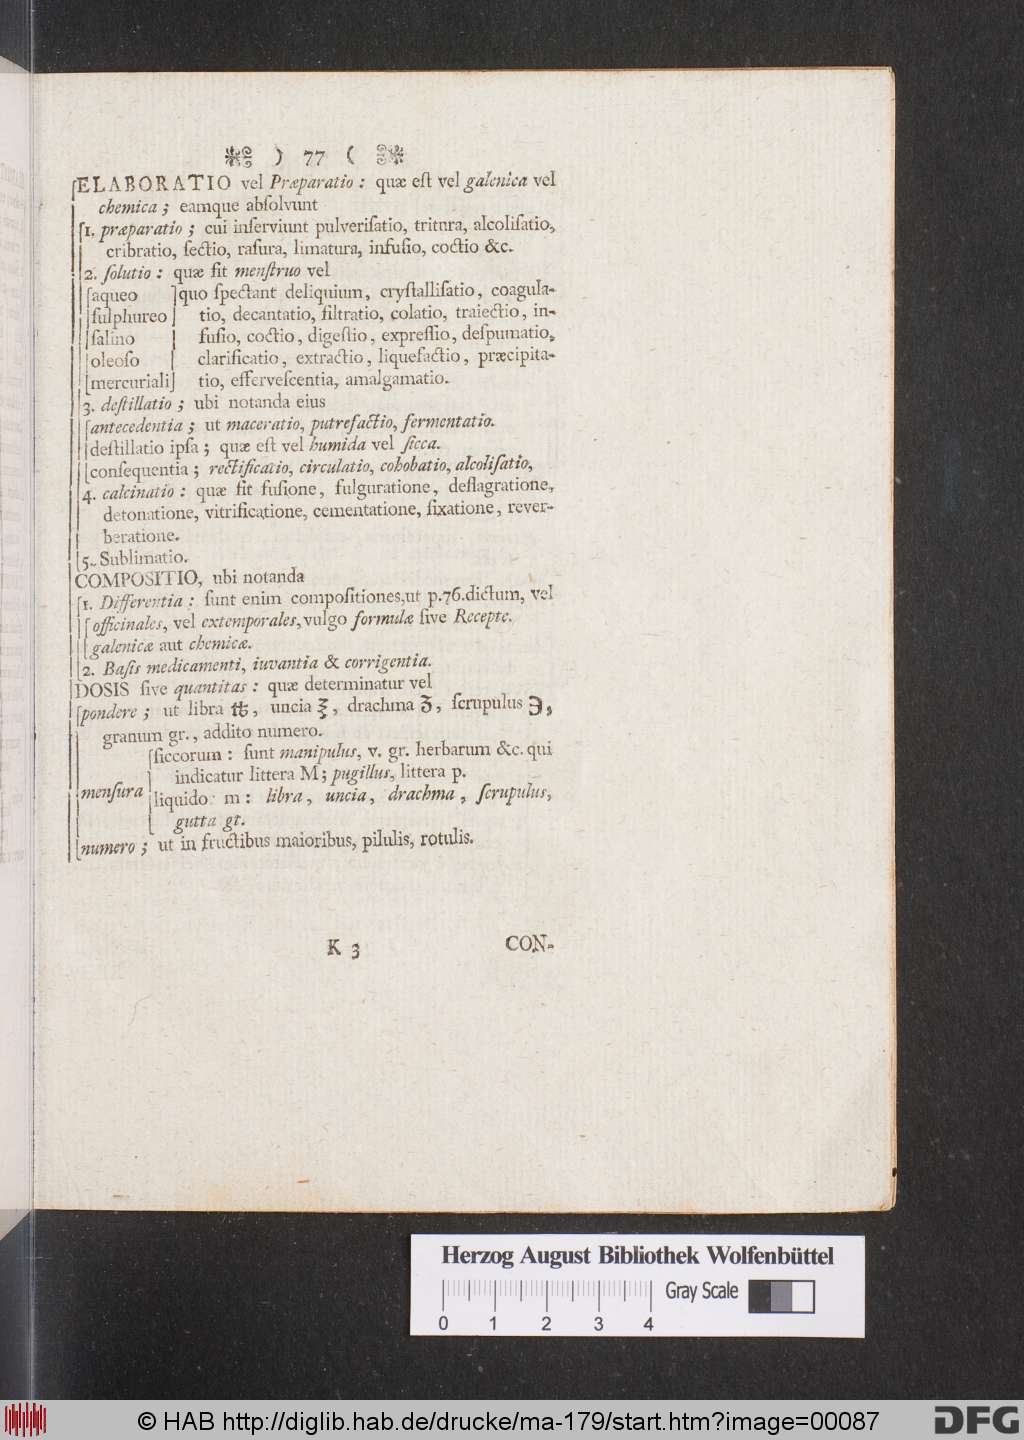 ) 77 (
ELABORATIO vel Præparatio : quæ eſt vel galenica vel
chemica ; eamque abſolvunt
1. præparatio ; cui inſerviunt pulveriſatio, tritura, alcoliſatio,
cribratio, ſectio, raſura, limatura, infuſio, coctio &c.
2. ſolutio : quæ fit menſtruo vel
aqueo quo ſpectant deliquium, cryſtalliſatio, coagula-
ſulphureo tio, decantatio, filtratio, colatio, traiectio, in-
ſalino fuſio, coctio, digeſtio, expreſſio, deſpumatio,
oleoſo clarificatio, extractio, liquefactio, præcipita-
mercuriali tio, efferveſcentia, amalgamatio.
3. deſtillatio ; ubi notanda eius
antecedentia ; ut maceratio, putrefactio, fermentatio.
deſtillatio ipſa ; quæ eſt vel humida vel ſicca.
conſequentia ; rectificatio, circulatio, cohobatio, alcoliſatio,
4. calcinatio : quæ fit fuſione, fulguratione, deflagratione,
detonatione, vitrificatione, cementatione, fixatione, rever-
beratione.
5. Sublimatio.
COMPOSITIO, ubi notanda
1. Differentia : ſunt enim compoſitiones,ut p.76.dictum, vel
officinales, vel extemporales, vulgo formulæ ſive Recepte.
galenicæ aut chemicæ.
2. Baſis medicamenti, iuvantia & corrigentia.
DOSIS ſive quantitas : quæ determinatur vel
pondere ; ut libra ℔, uncia ℥, drachma ʒ, ſcrupulus ℈,
granum gr., addito numero.
ſiccorum : ſunt manipulus, v. gr. herbarum &c. qui
indicatur littera M ; pugillus, littera p.
menſura
liquido m : libra, uncia, drachma, ſcrupulus,
gutta gt.
numero ; ut in fructibus maioribus, pilulis, rotulis.
K 3 CON-
Herzog August Bibliothek Wolfenbüttel
Gray Scale
0 1 2 3 4
© HAB http://diglib.hab.de/drucke/ma-179/start.htm?image=00087
DFG